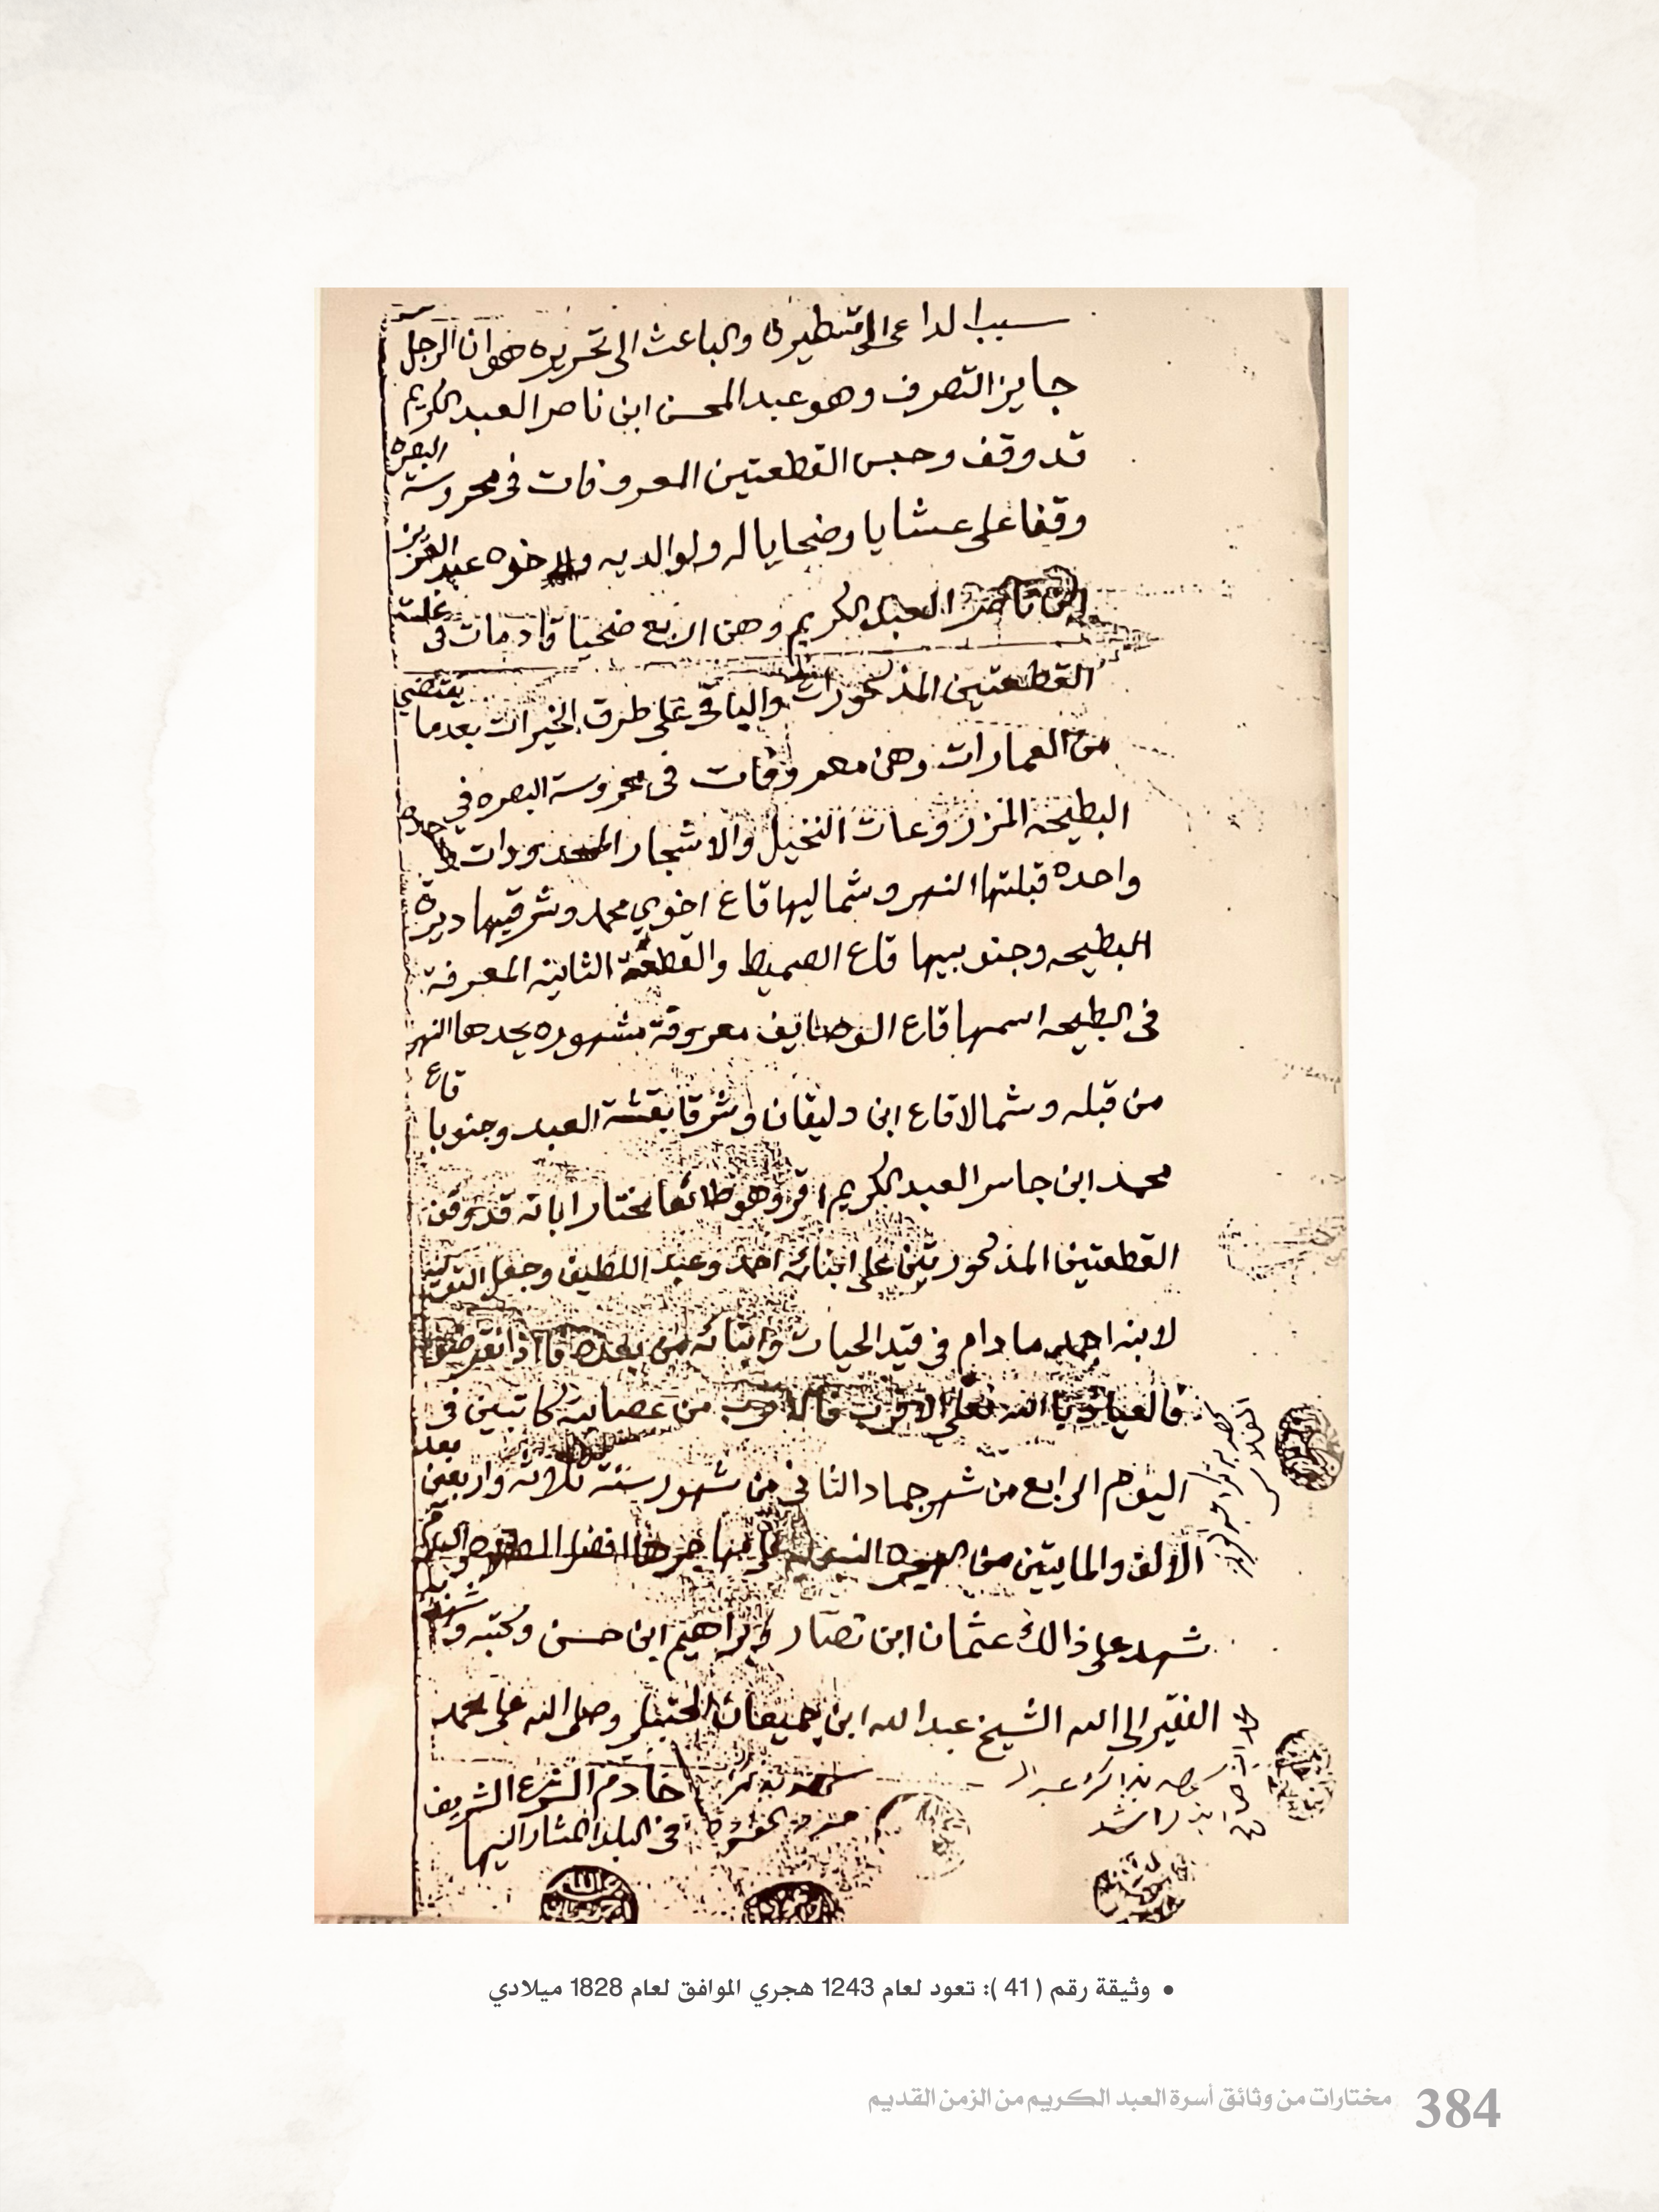 سبب الداعي الى تسطيره والباعث الى تحريره هو ان الرجل
جايز التصرف وهو عبد المحسن ابن ناصر العبد الكريم
قد وقف وحبس القطعتين المعروفات في محروسة البصره
وقفا على عشايا وضحايا له ولوالديه ولاخوه عبد العزيز
ابن ناصر العبد الكريم وهن اربع ضحيا قادمات في غلت
القطعتين المذكورات والباقي على طرق الخيرات بعدما يقتضي
من العمارات وهن معروفات في محروسة البصره في
البطيحه المزروعات النخيل والاشجار المحدودات
واحده قبلتها النهر وشماليها قاع اخوي محمد وشرقيها ديرة
البطيحه وجنوبيها قاع الصميط والقطعة الثانيه المعرفة
في البطيحه اسمها قاع الوصايف معروفة مشهوره يحدها النهر
من قبله وشمالا قاع ابن دليقان وشرقا بقشة العبد وجنوبا قاع
محمد ابن جاسر العبد الكريم اقر وهو طائعا مختارا بانه قد وقف
القطعتين المذكورتين على ابنائه احمد وعبد اللطيف وجعل التولية
لابنه احمد مادام في قيد الحيات وابنائه من بعده فاذا انقرضوا
فالعياذ بالله فعلى الاقرب فالاقرب من عصابته كاتبين في
اليوم الرابع من شهر جماد الثاني من شهور سنة ثلاثه واربعين بعد
الالف والمايتين من الهجره النبويه على مهاجرها افضل الصلاة والسلام
شهد على ذالك عثمان ابن نصار وابراهيم ابن حسن وكتبه وشهد به
الفقير الى الله الشيخ عبد الله ابن جميعان الحنبلي وصلى الله على محمد
خادم الشرع الشريف
في البلد المشار اليها
• وثيقة رقم ( 41 ): تعود لعام 1243 هجري الموافق لعام 1828 ميلادي
384 مختارات من وثائق أسرة العبد الكريم من الزمن القديم